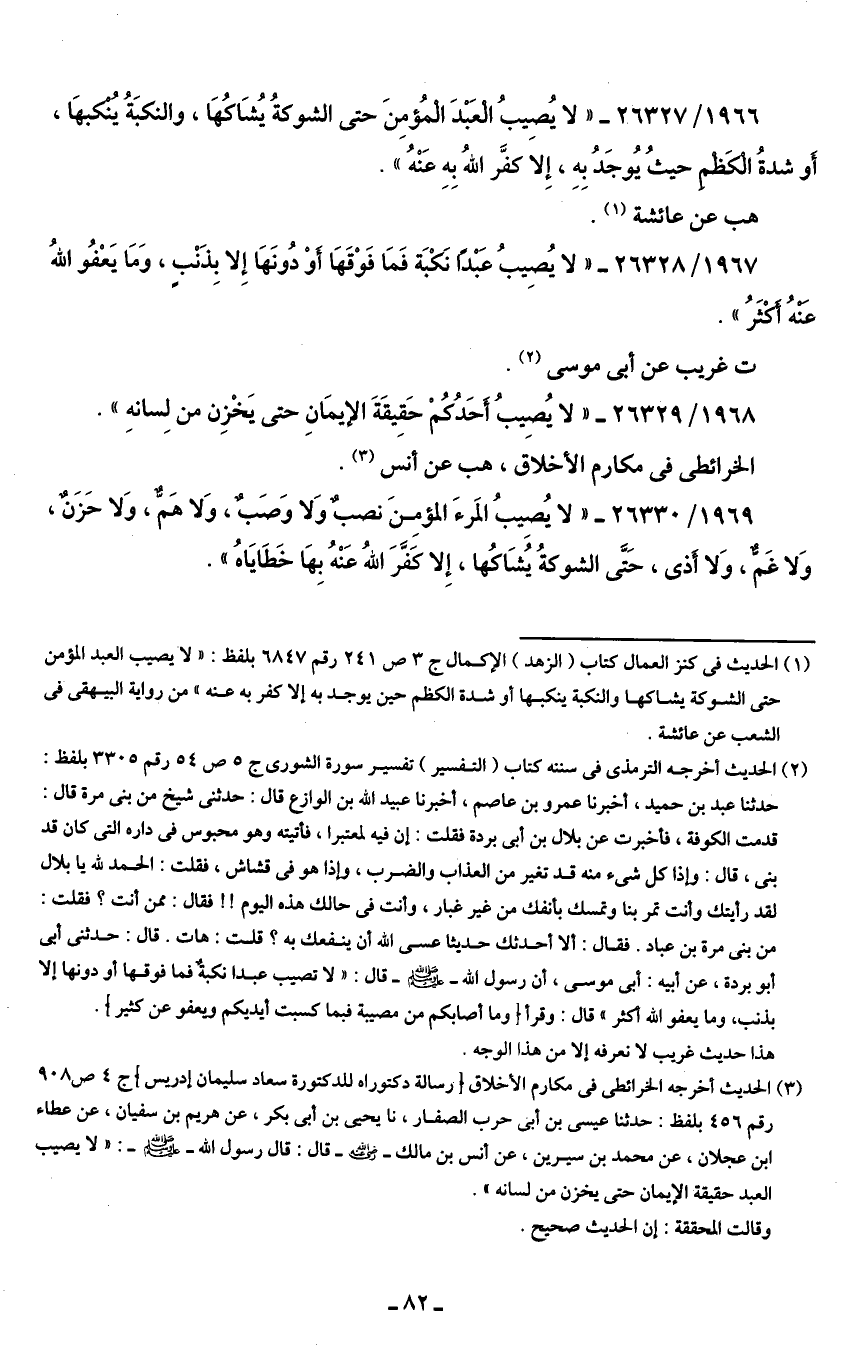 ١٩٦٦/ ٢٦٣٢٧ ـ « لا يُصِيبُ الْعَبْدَ الْمُؤمِنَ حتى الشوكةُ يُشَاكُهَا ، والنكبَةُ يُنْكبهَا ،
أو شدةُ الْكَظْمِ حيثُ يُوجَدُ بِهِ ، إلا كفَّر اللهُ بِهِ عَنْهُ » .
هب عن عائشة (١) .
١٩٦٧/ ٢٦٣٢٨ ـ « لا يُصِيبُ عَبْدًا نَكْبَة فَمَا فَوْقَهَا أوْ دُونَهَا إلا بِذَنْبٍ ، وَمَا يَعْفُو اللهُ
عَنْهُ أكْثَرُ » .
ت غريب عن أبى موسى (٢) .
١٩٦٨/ ٢٦٣٢٩ ـ « لا يُصِيبُ أحَدُكُمْ حَقِيقَةَ الإيمَانِ حتى يَخْزِن من لِسانهِ » .
الخرائطى فى مكارم الأخلاق ، هب عن أنس (٣) .
١٩٦٩/ ٢٦٣٣٠ ـ « لا يُصِيبُ المَرءَ المؤمِنَ نصبٌ وَلا وَصَبٌ ، وَلا هَمٌّ ، وَلا حَزَنٌ ،
وَلا غَمٌّ ، وَلا أذى ، حَتَّى الشوكةُ يُشَاكُها ، إلا كَفَّرَ اللهُ عَنْهُ بِهَا خَطَايَاهُ » .
(١) الحديث فى كنز العمال كتاب ( الزهد ) الإكمال ج ٣ ص ٢٤١ رقم ٦٨٤٧ بلفظ : « لا يصيب العبد المؤمن
حتى الشوكة يشاكها والنكبة ينكبها أو شدة الكظم حين يوجد به إلا كفر به عنه » من رواية البيهقى فى
الشعب عن عائشة .
(٢) الحديث أخرجه الترمذى فى سننه كتاب ( التفسير ) تفسير سورة الشورى ج ٥ ص ٥٤ رقم ٣٣٠٥ بلفظ :
حدثنا عبد بن حميد ، أخبرنا عمرو بن عاصم ، أخبرنا عبيد الله بن الوازع قال : حدثنى شيخ من بنى مرة قال :
قدمت الكوفة ، فأخبرت عن بلال بن أبى بردة فقلت : إن فيه لمعتبرا ، فأتيته وهو محبوس فى داره التى كان قد
بنى ، قال : وإذا كل شىء منه قد تغير من العذاب والضرب ، وإذا هو فى قشاش ، فقلت : الحمد لله يا بلال
لقد رأيتك وأنت تمر بنا وتمسك بأنفك من غير غبار ، وأنت فى حالك هذه اليوم !! فقال : ممن أنت ؟ فقلت :
من بنى مرة بن عباد . فقال : ألا أحدثك حديثا عسى الله أن ينفعك به ؟ قلت : هات . قال : حدثنى أبى
أبو بردة ، عن أبيه : أبى موسى ، أن رسول الله ـ ﷺ ـ قال : « لا تصيب عبدا نكبةٌ فما فوقها أو دونها إلا
بذنب، وما يعفو الله أكثر » قال : وقرأ { وما أصابكم من مصيبة فبما كسبت أيديكم ويعفو عن كثير } .
هذا حديث غريب لا نعرفه إلا من هذا الوجه .
(٣) الحديث أخرجه الخرائطى فى مكارم الأخلاق { رسالة دكتوراه للدكتورة سعاد سليمان إدريس } ج ٤ ص٩٠٨
رقم ٤٥٦ بلفظ : حدثنا عيسى بن أبى حرب الصفار ، نا يحيى بن أبى بكر ، عن هريم بن سفيان ، عن عطاء
ابن عجلان ، عن محمد بن سيرين ، عن أنس بن مالك ـ رضي الله عنه ـ قال : قال رسول الله ـ ﷺ ـ : « لا يصيب
العبد حقيقة الإيمان حتى يخزن من لسانه » .
وقالت المحققة : إن الحديث صحيح .
ـ ٨٢ ـ